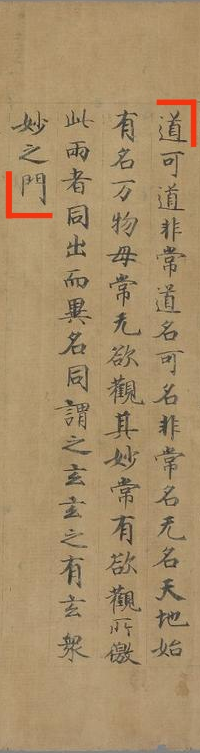 道可道非常道名可名非常名无名天地始
有名万物母常无欲觀其妙常有欲觀所徼
此兩者同出而異名同謂之玄玄之有玄衆
妙之門